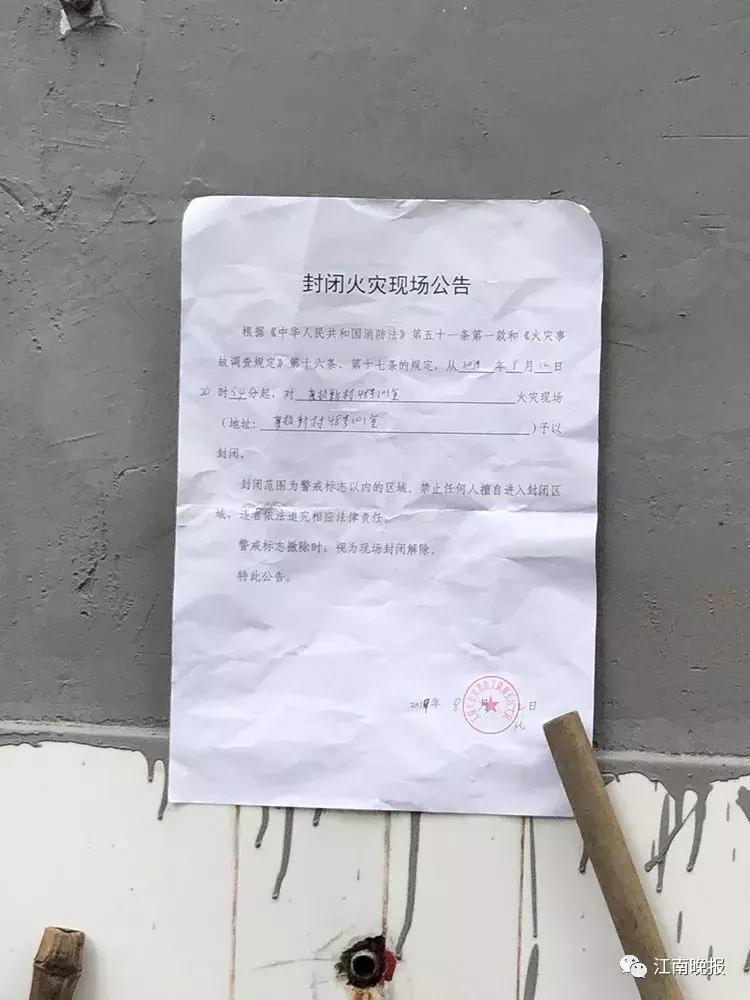 封闭火灾现场公告
根据《中华人民共和国消防法》第五十一条第一款和《火灾事
故调查规定》第十六条、第十七条的规定，从2019年8月12日
20时54分起，对 新村48号101室 火灾现场
（地址： 新村48号101室 ）予以
封闭。
封闭范围为警戒标志以内的区域，禁止任何人擅自进入封闭区
域，违者依法追究相应法律责任。
警戒标志撤除时，视为现场封闭解除。
特此公告。
2019年8月 日
江南晚报